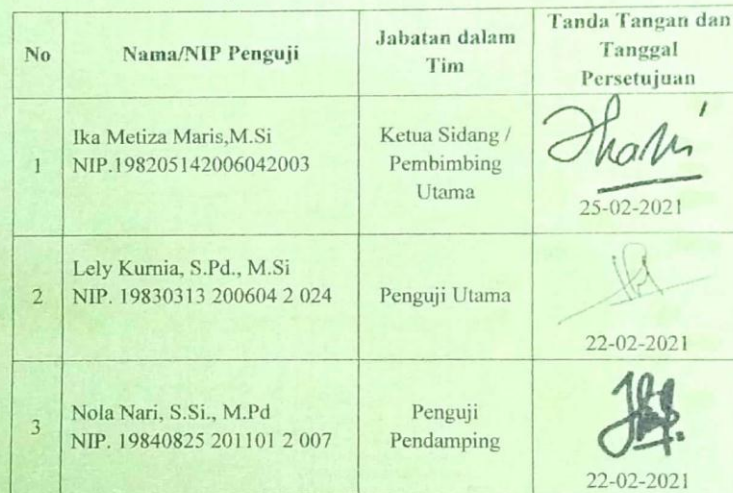 No
Nama/NIP Penguji
Jabatan dalam
Tim
Tanda Tangan dan
Tanggal
Persetujuan
1
Ika Metiza Maris,M.Si
NIP.198205142006042003
Ketua Sidang /
Pembimbing
Utama
25-02-2021
2
Lely Kurnia, S.Pd., M.Si
NIP. 19830313 200604 2 024
Penguji Utama
22-02-2021
3
Nola Nari, S.Si., M.Pd
NIP. 19840825 201101 2 007
Penguji
Pendamping
22-02-2021